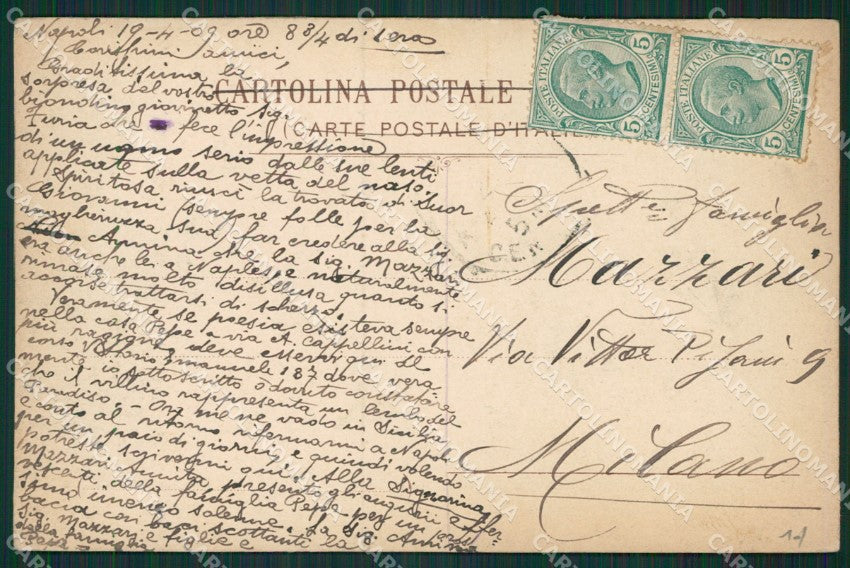 Napoli 19-4-09 ore 8 3/4 di sera
Carissimi amici,
Graditissima la
sorpresa del vostro
bijondino giovinetto sig.
Turia che fece l'impressione
di un uomo serio dalle sue lenti
applicate sulla vetta del naso.
Spiritosa riuscì la trovata di Suor
Giovanni (sempre folle per la
margheruzza sua) far credere alla sig.
Annina che la sig. Mazzari
era anche le a Naples, e naturalmente
rimase molto disillusa quando s'
accorse trattarsi di scherzo.
Veramente se poesia esisteva sempre
nella casa Pepe a via A. Cappellini con
più ragione deve esservi qui al
corso Vittorio Emanuele 187 dove vera
mente io sottoscritto ò dovuto constatare
che il villino rappresenta un lembo del
Paradiso. - Ora me ne vado in Sicilia
e conto al ritorno rifermarmi a Napoli
per un paio di giorni e quindi volendo
potreste scrivermi qui. Alla Signorina
Mazzari Annita presento gli auguri e
della famiglia Pepe per un
imeneo solenne. La sig. Annina
bacia con baci scottanti la
sig. Mazzari e figlie e
della famiglia
CARTOLINA POSTALE
(CARTE POSTALE D'ITALIE)
POSTE ITALIANE
5
CENTESIMI
5
POSTE ITALIANE
5
CENTESIMI
5
Spett. famiglia
Mazzari
Via Vittor Pisani 9
Milano
CARTOLINOMANIA